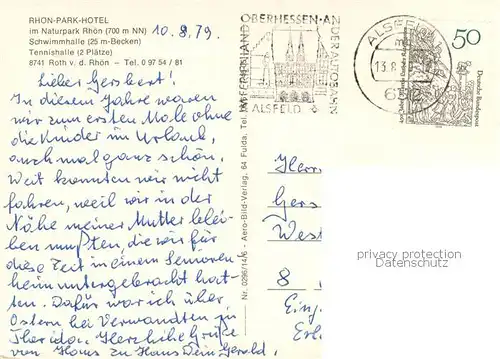 RHÖN-PARK-HOTEL
im Naturpark Rhön (700 m NN)
Schwimmhalle (25 m-Becken)
Tennishalle (2 Plätze)
8741 Roth v. d. Rhön – Tel. 0 97 54 / 81
10.8.79.
Lieber Gerhart!
In diesem Jahre waren
wir zum ersten Male ohne
die Kinder im Urlaub,
auch mal ganz schön.
Weit konnten wir nicht
fahren, weil wir in der
Nähe meiner Mutter blei-
ben mußten, die wir für
diese Zeit in einem Senioren-
heim untergebracht hat-
ten. Dafür war ich über
Ostern bei Verwandten in
Florida. Herzliche Grüße
von Haus zu Haus Dein Gerold.
Nr. 0296/14/6 - Aero-Bild-Verlag, 64 Fulda, Tel.
OBERHESSEN · AN
DER AUTOBAHN
ALSFELD
ALSFELD
13.8.
50
Deutsche Bundespost
Herrn
Gers
West
8
Eing
privacy protection
Datenschutz